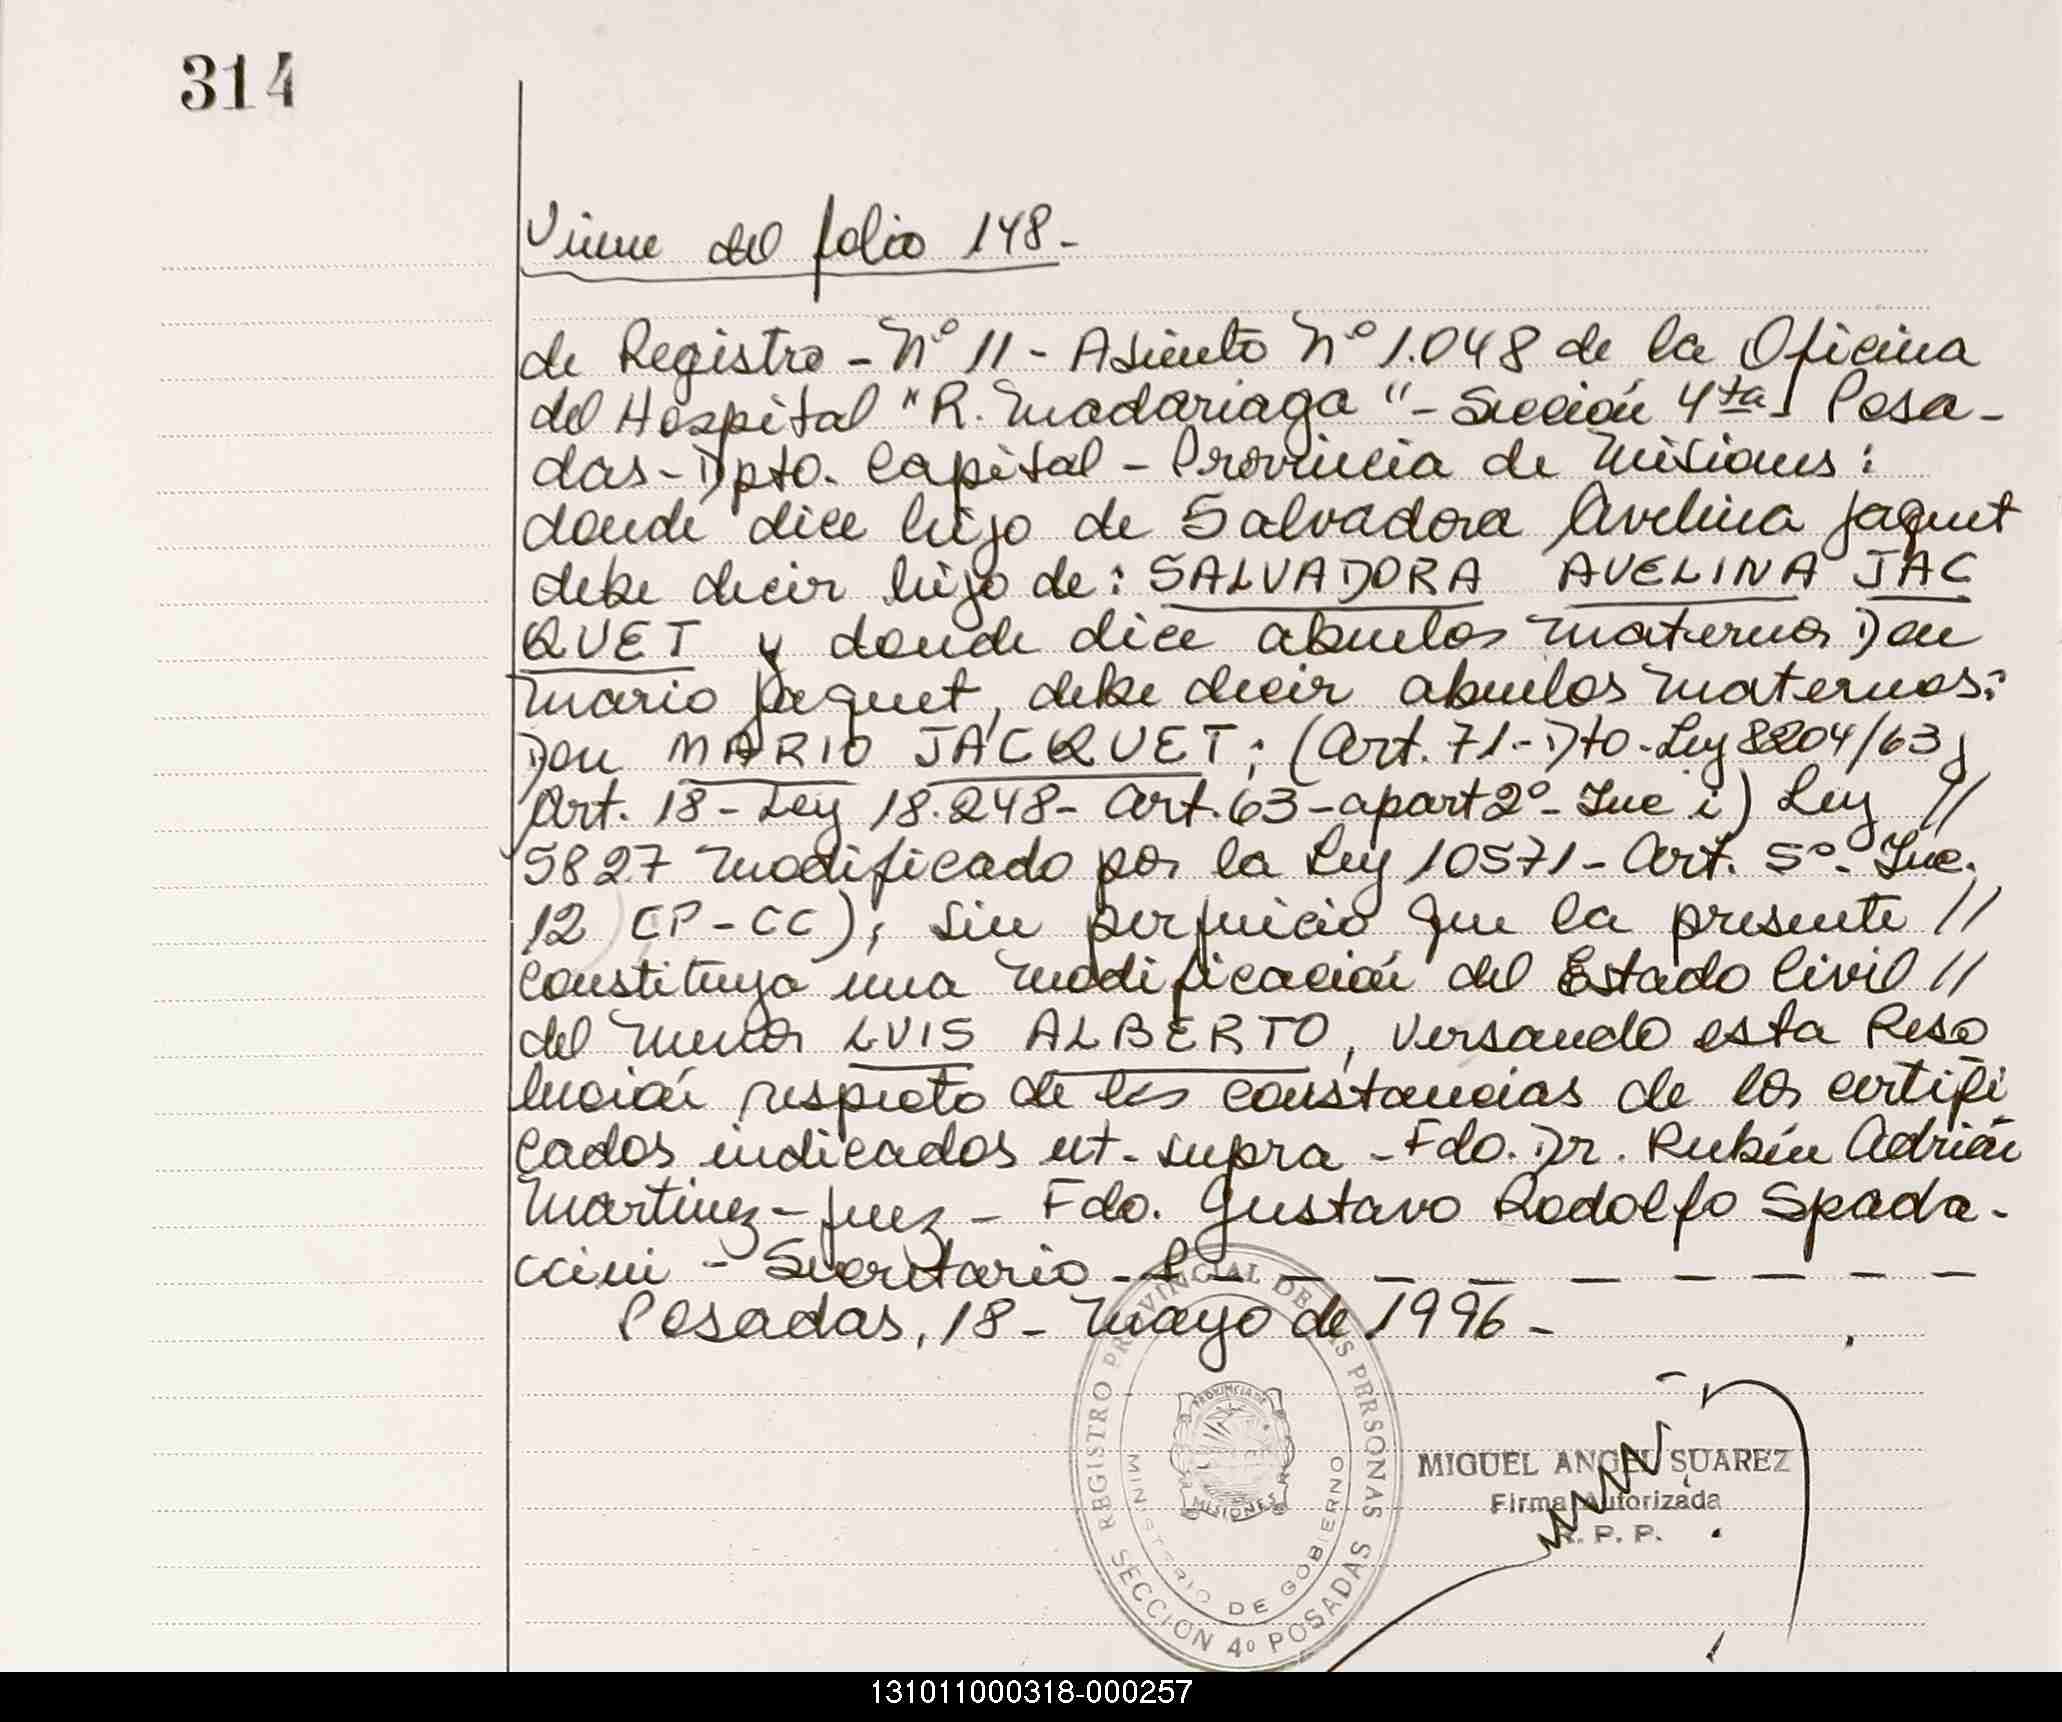 314
Viene del folio 148-
de Registro - Nº 11 - Asiento Nº 1.048 de la Oficina
del Hospital "R. Madariaga" - Sección 4ta - Posa-
das - Dpto. Capital - Provincia de Misiones:
donde dice hijo de Salvadora Avelina Jaquet
debe decir hijo de: SALVADORA AVELINA JAC
QUET y donde dice abuelos maternos Don
Mario Jaquet, debe decir abuelos maternos:
Don MARIO JACQUET; (Art. 71 - Dto - Ley 8204/63,
Art. 18 - Ley 18.248 - Art. 63 - apart 2º - Inc i) Ley //
5827 modificado por la Ley 10571 - Art. 5º - Inc.
12 CP - CC); sin perjuicio que la presente //
constituya una modificación del Estado Civil //
del menor LUIS ALBERTO, versando esta Reso
lución respecto de las constancias de los certifi
cados indicados ut - supra - Fdo. Dr. Rubén Adrián
Martinez - Juez - Fdo. Gustavo Rodolfo Spada-
ccini - Secretario -
Posadas, 18 - Mayo de 1996 -
REGISTRO PROVINCIAL DE LAS PERSONAS
SECCION 4º POSADAS
MINISTERIO DE GOBIERNO
PROVINCIA DE
MISIONES
MIGUEL ANGEL SUAREZ
Firma Autorizada
R. P. P.
131011000318-000257